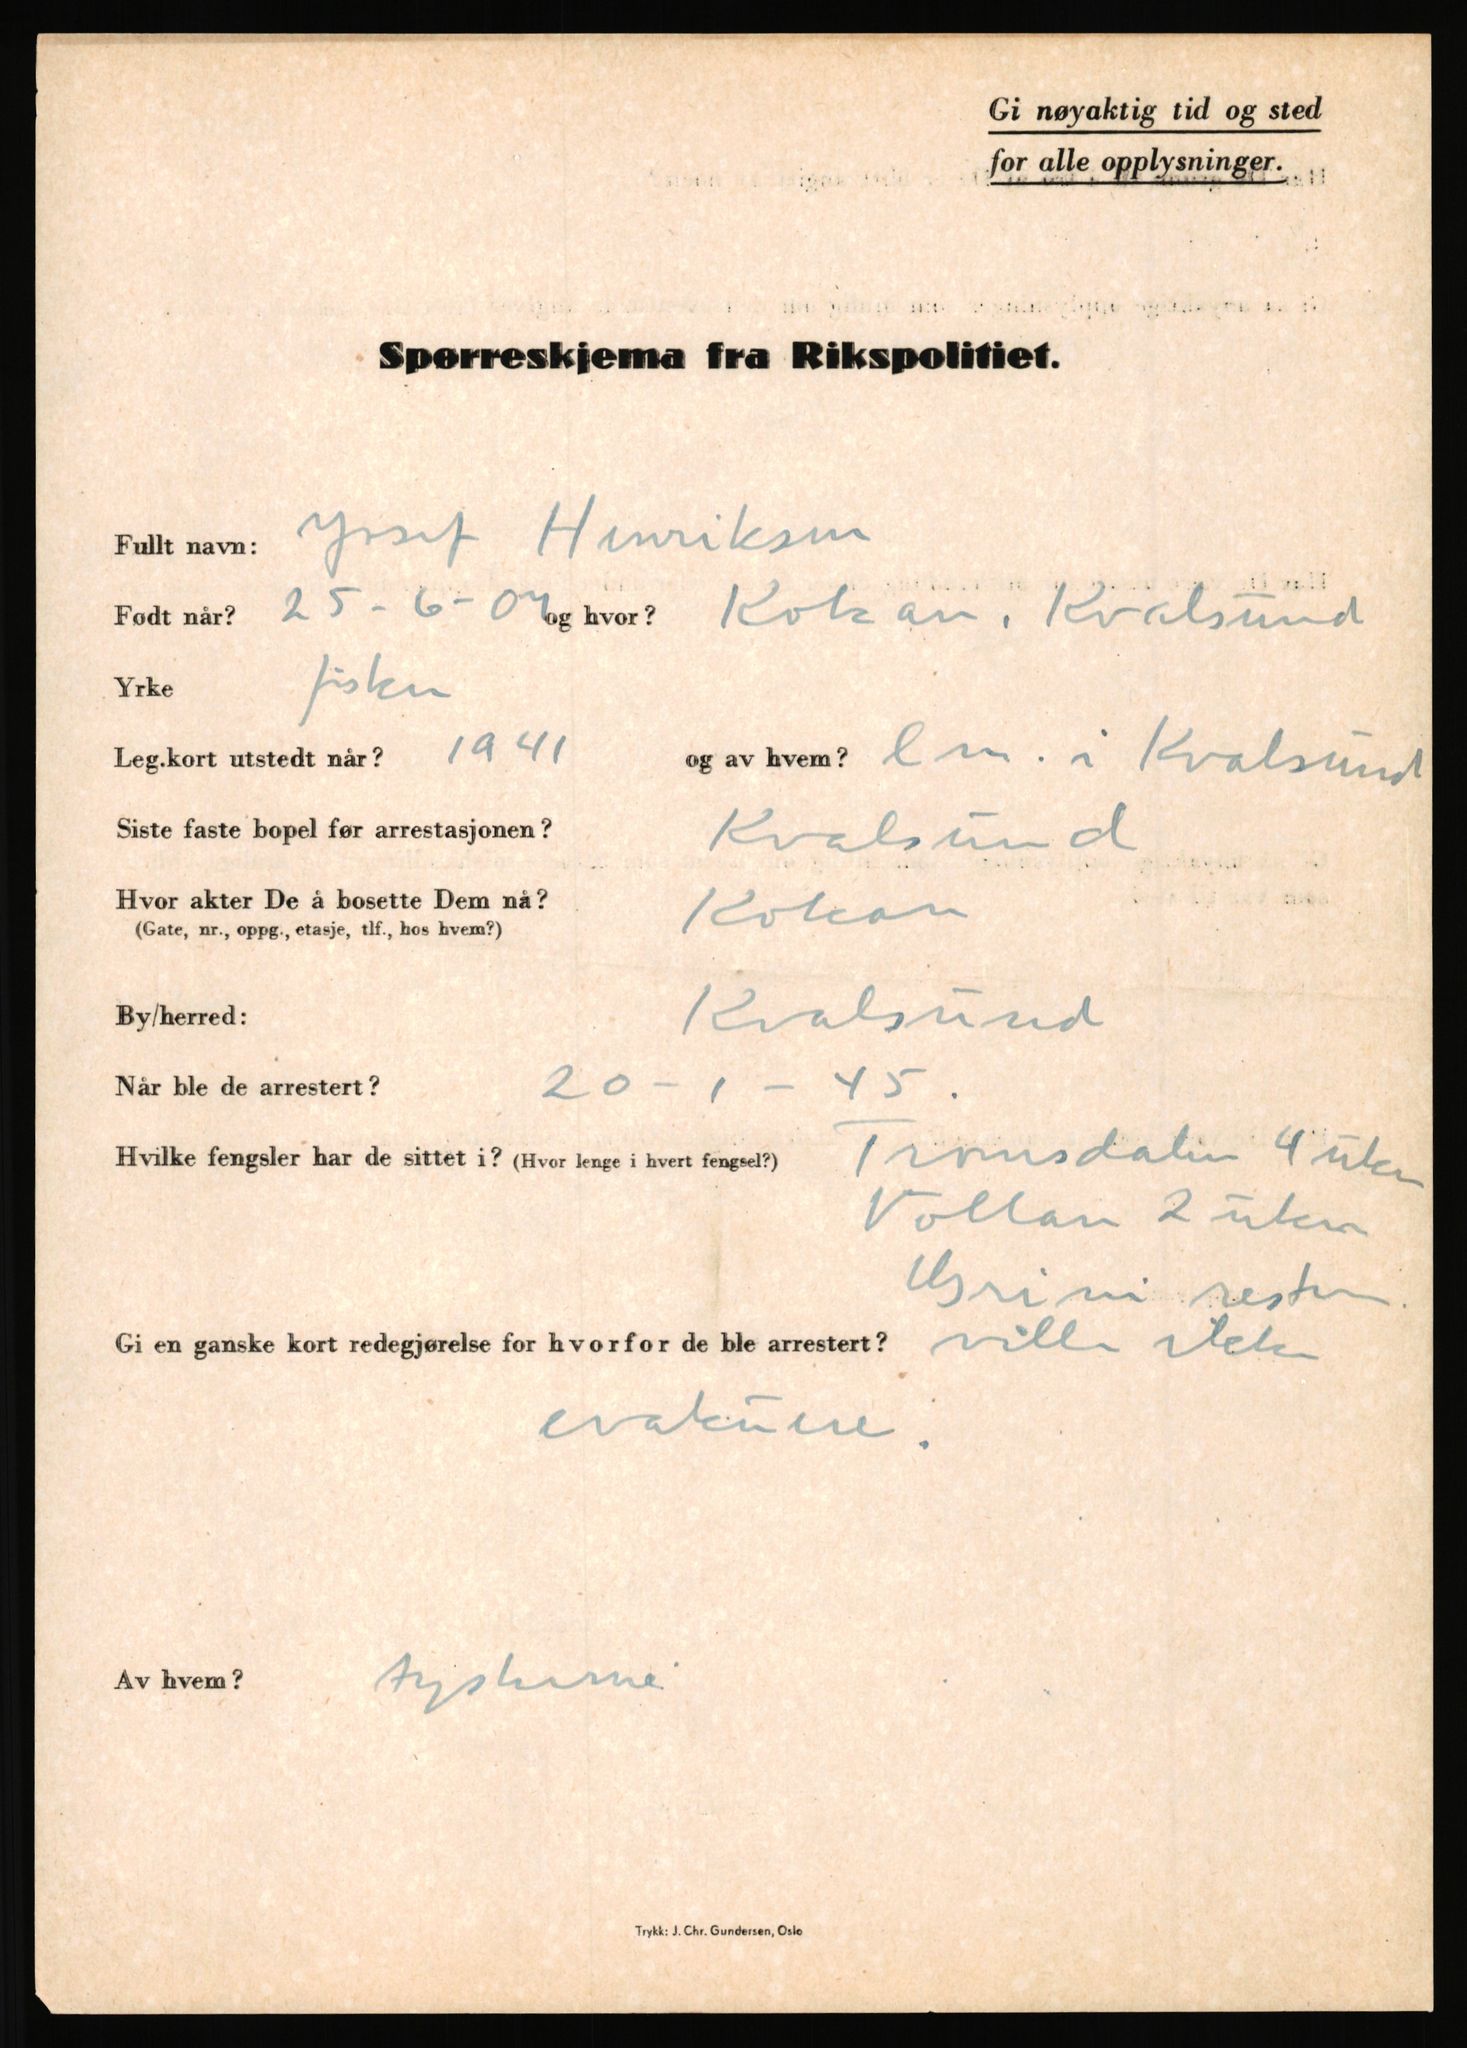 Gi nøyaktig tid og sted
for alle opplysninger.
Spørreskjema fra Rikspolitiet.
Fullt navn: Josef Henriksen
Født når? 25-6-07 og hvor? Kokan, Kvalsund
Yrke fisker
Leg.kort utstedt når? 1941 og av hvem? lm. i Kvalsund
Siste faste bopel før arrestasjonen? Kvalsund
Hvor akter De å bosette Dem nå? Kokan
(Gate, nr., oppg., etasje, tlf., hos hvem?)
By/herred: Kvalsund
Når ble de arrestert? 20-1-45.
Hvilke fengsler har de sittet i? (Hvor lenge i hvert fengsel?) Tromsdalen 4 uker
Vollan 2 uker
Grini resten.
Gi en ganske kort redegjørelse for hvorfor de ble arrestert? ville ikke
evakuere.
Av hvem? tyskerne
Trykk: J. Chr. Gundersen, Oslo